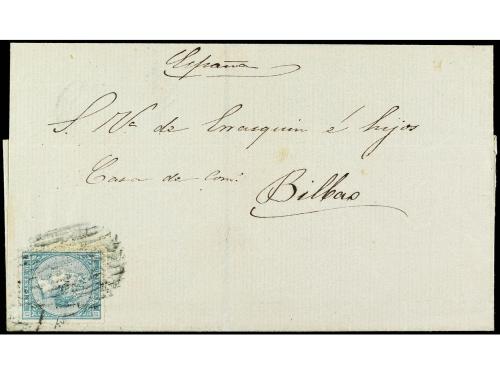 España
S. Va de Errasquin é hijos
Casa de Com.
Bilbao